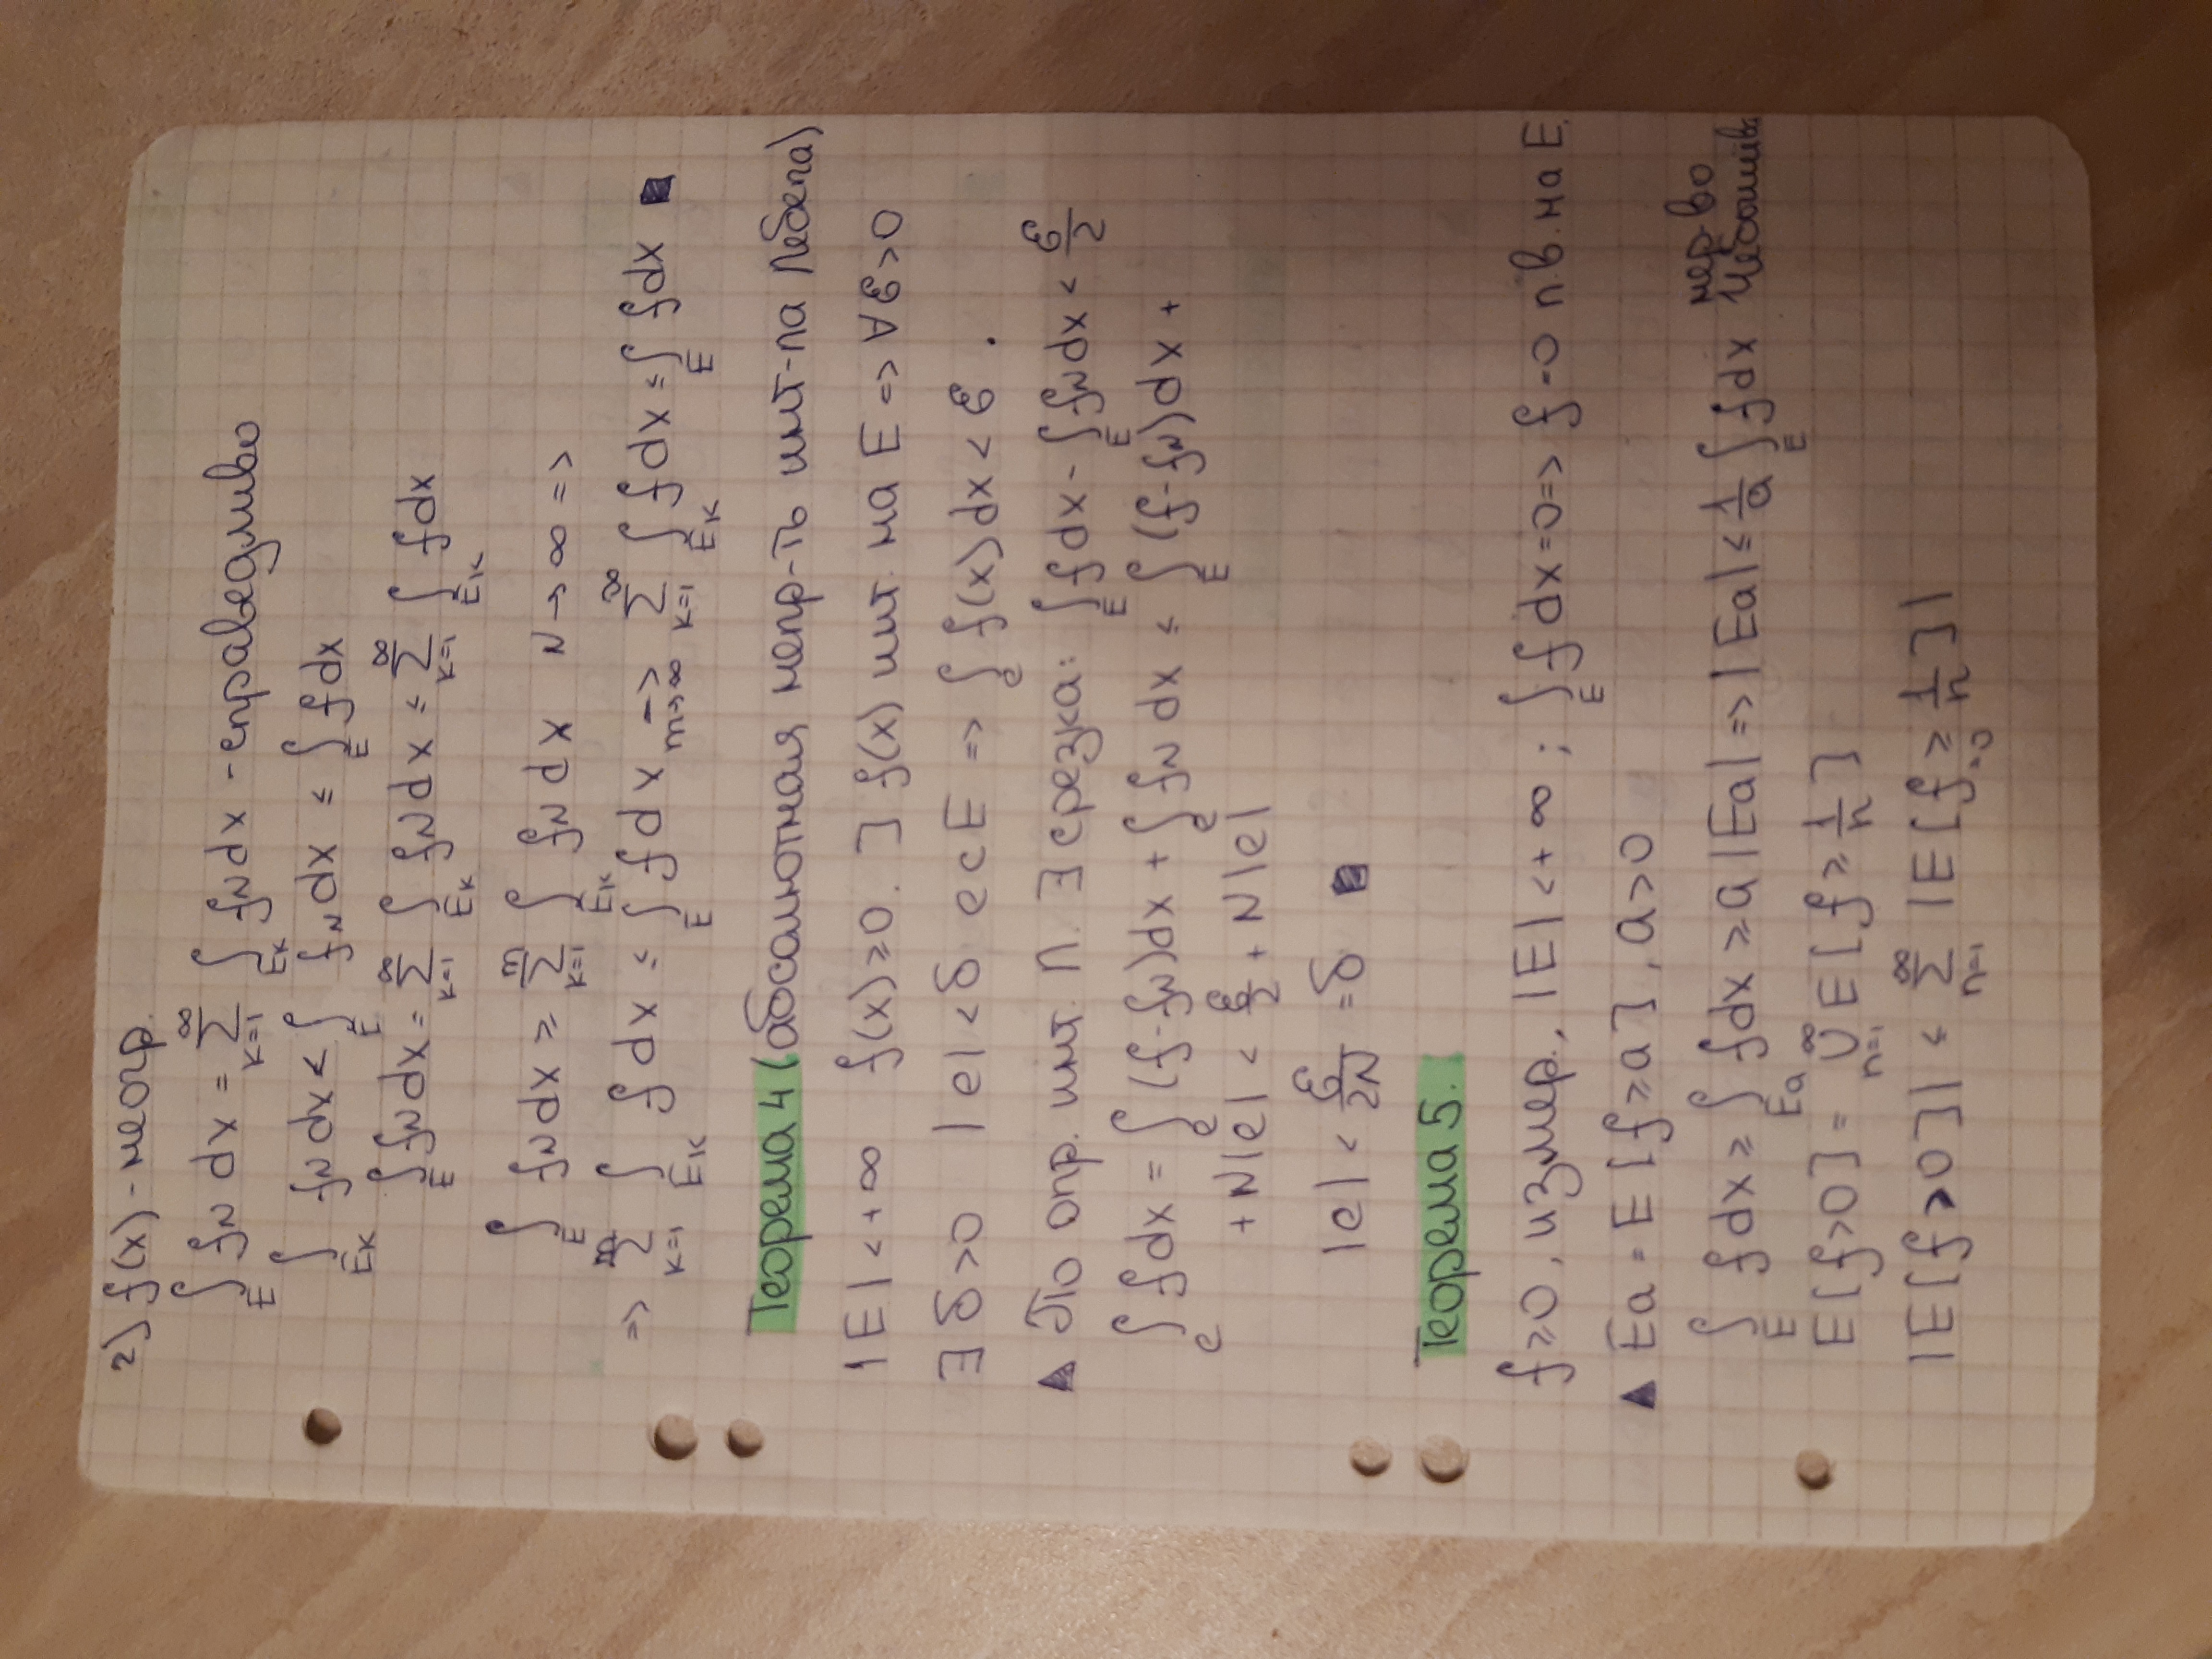 2) f(x) - неогр.
∫_E f_N dx = ∑_{k=1}^∞ ∫_{E_k} f_N dx - справедливо
∫_{E_k} f_N dx ≤ ∫_E f_N dx ≤ ∫_E f dx
∫_E f_N dx = ∑_{k=1}^∞ ∫_{E_k} f_N dx ≤ ∑_{k=1}^∞ ∫_{E_k} f dx
∫_E f_N dx ≥ ∑_{k=1}^m ∫_{E_k} f_N dx N → ∞ =>
=> ∑_{k=1}^m ∫_{E_k} f dx ≤ ∫_E f dx →_{m→∞} ∑_{k=1}^∞ ∫_{E_k} f dx ≤ ∫_E f dx ■
Теорема 4 (абсолютная непр-ть инт-ла Лебега)
|E| < +∞ f(x) ≥ 0. ] f(x) инт. на E => ∀ε>0
∃ δ>0 |e| < δ e ⊂ E => ∫_e f(x) dx < ε.
▲ По опр. инт. Л. ∃ срезка: ∫_E f dx - ∫_E f_N dx < ε/2
∫_e f dx = ∫_e (f-f_N) dx + ∫_e f_N dx ≤ ∫_E (f-f_N) dx +
+ N|e| < ε/2 + N|e|
|e| < ε/2N = δ ■
Теорема 5.
f ≥ 0, измер., |E| < +∞ ; ∫_E f dx = 0 => f = 0 п.в. на E.
▲ E_a = E [f ≥ a], a > 0
∫_E f dx ≥ ∫_{E_a} f dx ≥ a|E_a| => |E_a| ≤ 1/a ∫_E f dx нер-во
E[f>0] = ∪_{n=1}^∞ E[f ≥ 1/n]
|E[f>0]| ≤ ∑_{n=1}^∞ |E[f ≥ 1/n]| =0